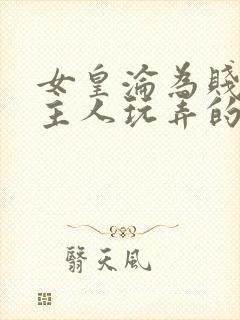 女皇淪為賤
主人玩弄的
翳天風